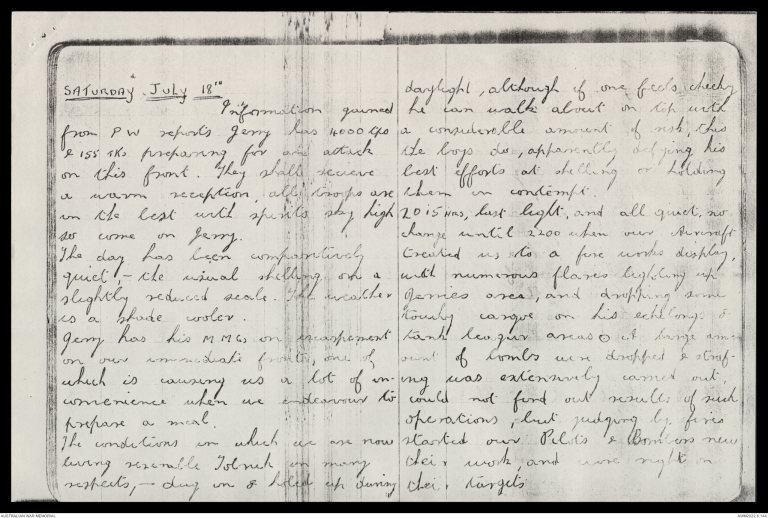 SATURDAY JULY 18TH
Information gained
from P W reports Jerry has 4000 tps
& 155 TKs preparing for an attack
on this front. They shall receive
a warm reception, all troops are
in the best with spirits sky high
so come on Jerry.
The day has been comparitively
quiet, - the usual shelling on a
slightly reduced scale. The weather
is a shade cooler.
Jerry has his M M Gs on escarpement
on our immediate front, one of
which is causing us a lot of in-
convenience when we endeavour to
prepare a meal.
The conditions in which we are now
living resemble Tobruk in many
respects, - dug in & holed up during
daylight, although if one feels cheeky
he can walk about on top with
a considerable amount of risk, this
the boys do, apparently defying his
best efforts at shelling or holding
them in contempt.
2015 HRS, last light, and all quiet, no
change until 2200 when our Aircraft
treated us to a fire works display,
with numerous flares lighting up
Jerries area, and dropping some
cargoe on his echelongs &
tank leaguer areas. A large am-
ount of bombs were dropped & straf-
ing was extensively carried out,
could not find out results of such
operations, but judging by fires
started our Pilots & Bombers new
their work, and were right on
their targets
AUSTRALIAN WAR MEMORIAL